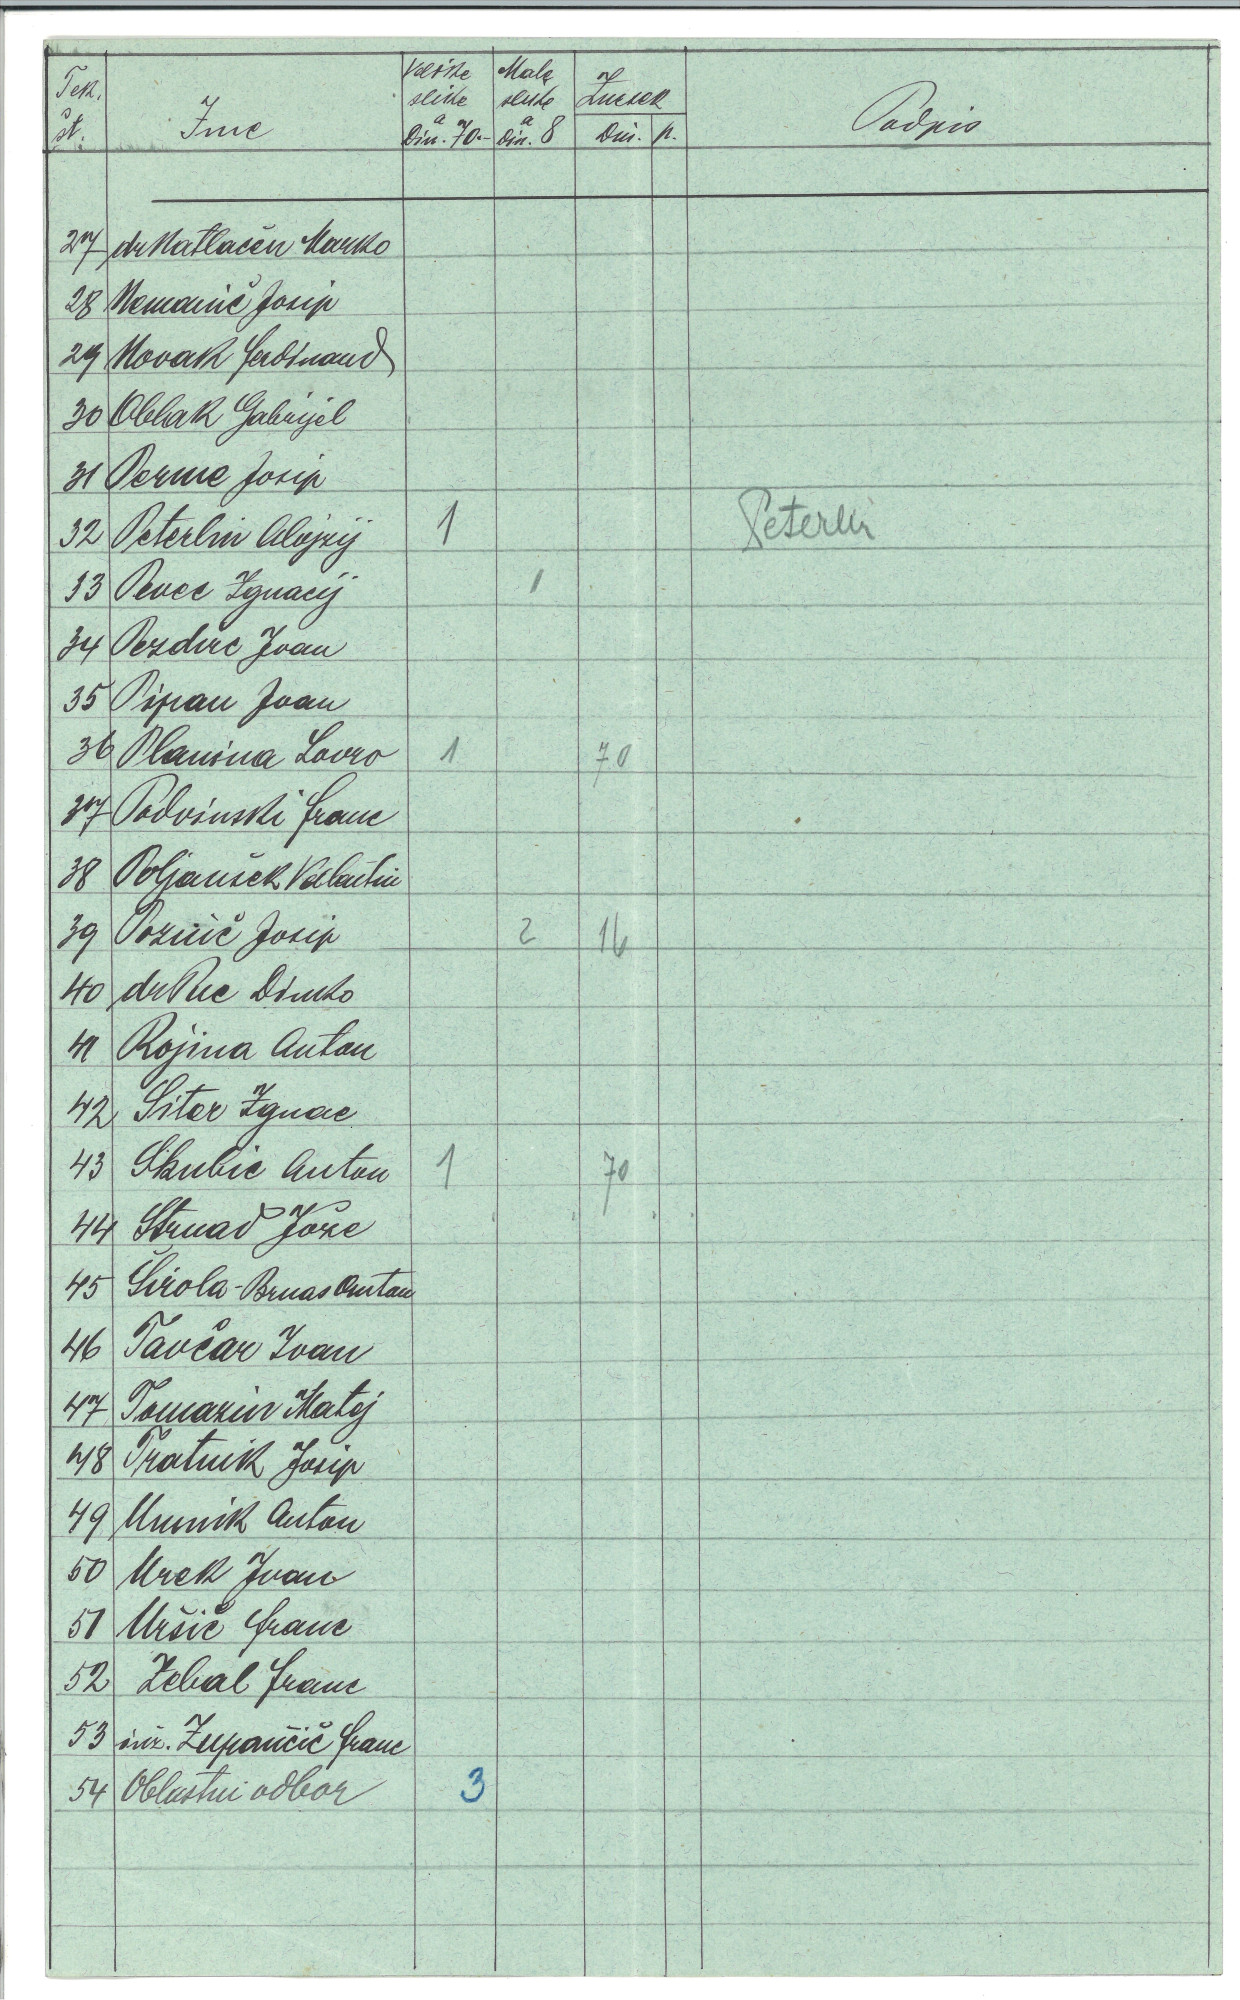 Tek. št. Ime Velike slike à Din. 70.- Male slike à Din. 8 Znesek Din. p. Podpis
27 dr Natlačen Marko
28 Nemanič Josip
29 Novak Ferdinand
30 Oblak Gabrijel
31 Perme Josip
32 Peterlin Alojzij 1 Peterlin
33 Pevec Ignacij 1
34 Pezdirc Ivan
35 Pipan Ivan
36 Planina Lovro 1 70
37 Podvinski Franc
38 Poljanšek Valentin
39 Poznič Josip 2 16
40 dr Puc Dinko
41 Rojina Anton
42 Siter Ignac
43 Skubic Anton 1 70
44 Strnad Jože
45 Širola-Brnas Anton
46 Tavčar Ivan
47 Tomazin Matej
48 Tratnik Josip
49 Umnik Anton
50 Urek Ivan
51 Uršič Franc
52 Zebal Franc
53 inž. Zupančič Franc
54 Oblastni odbor 3